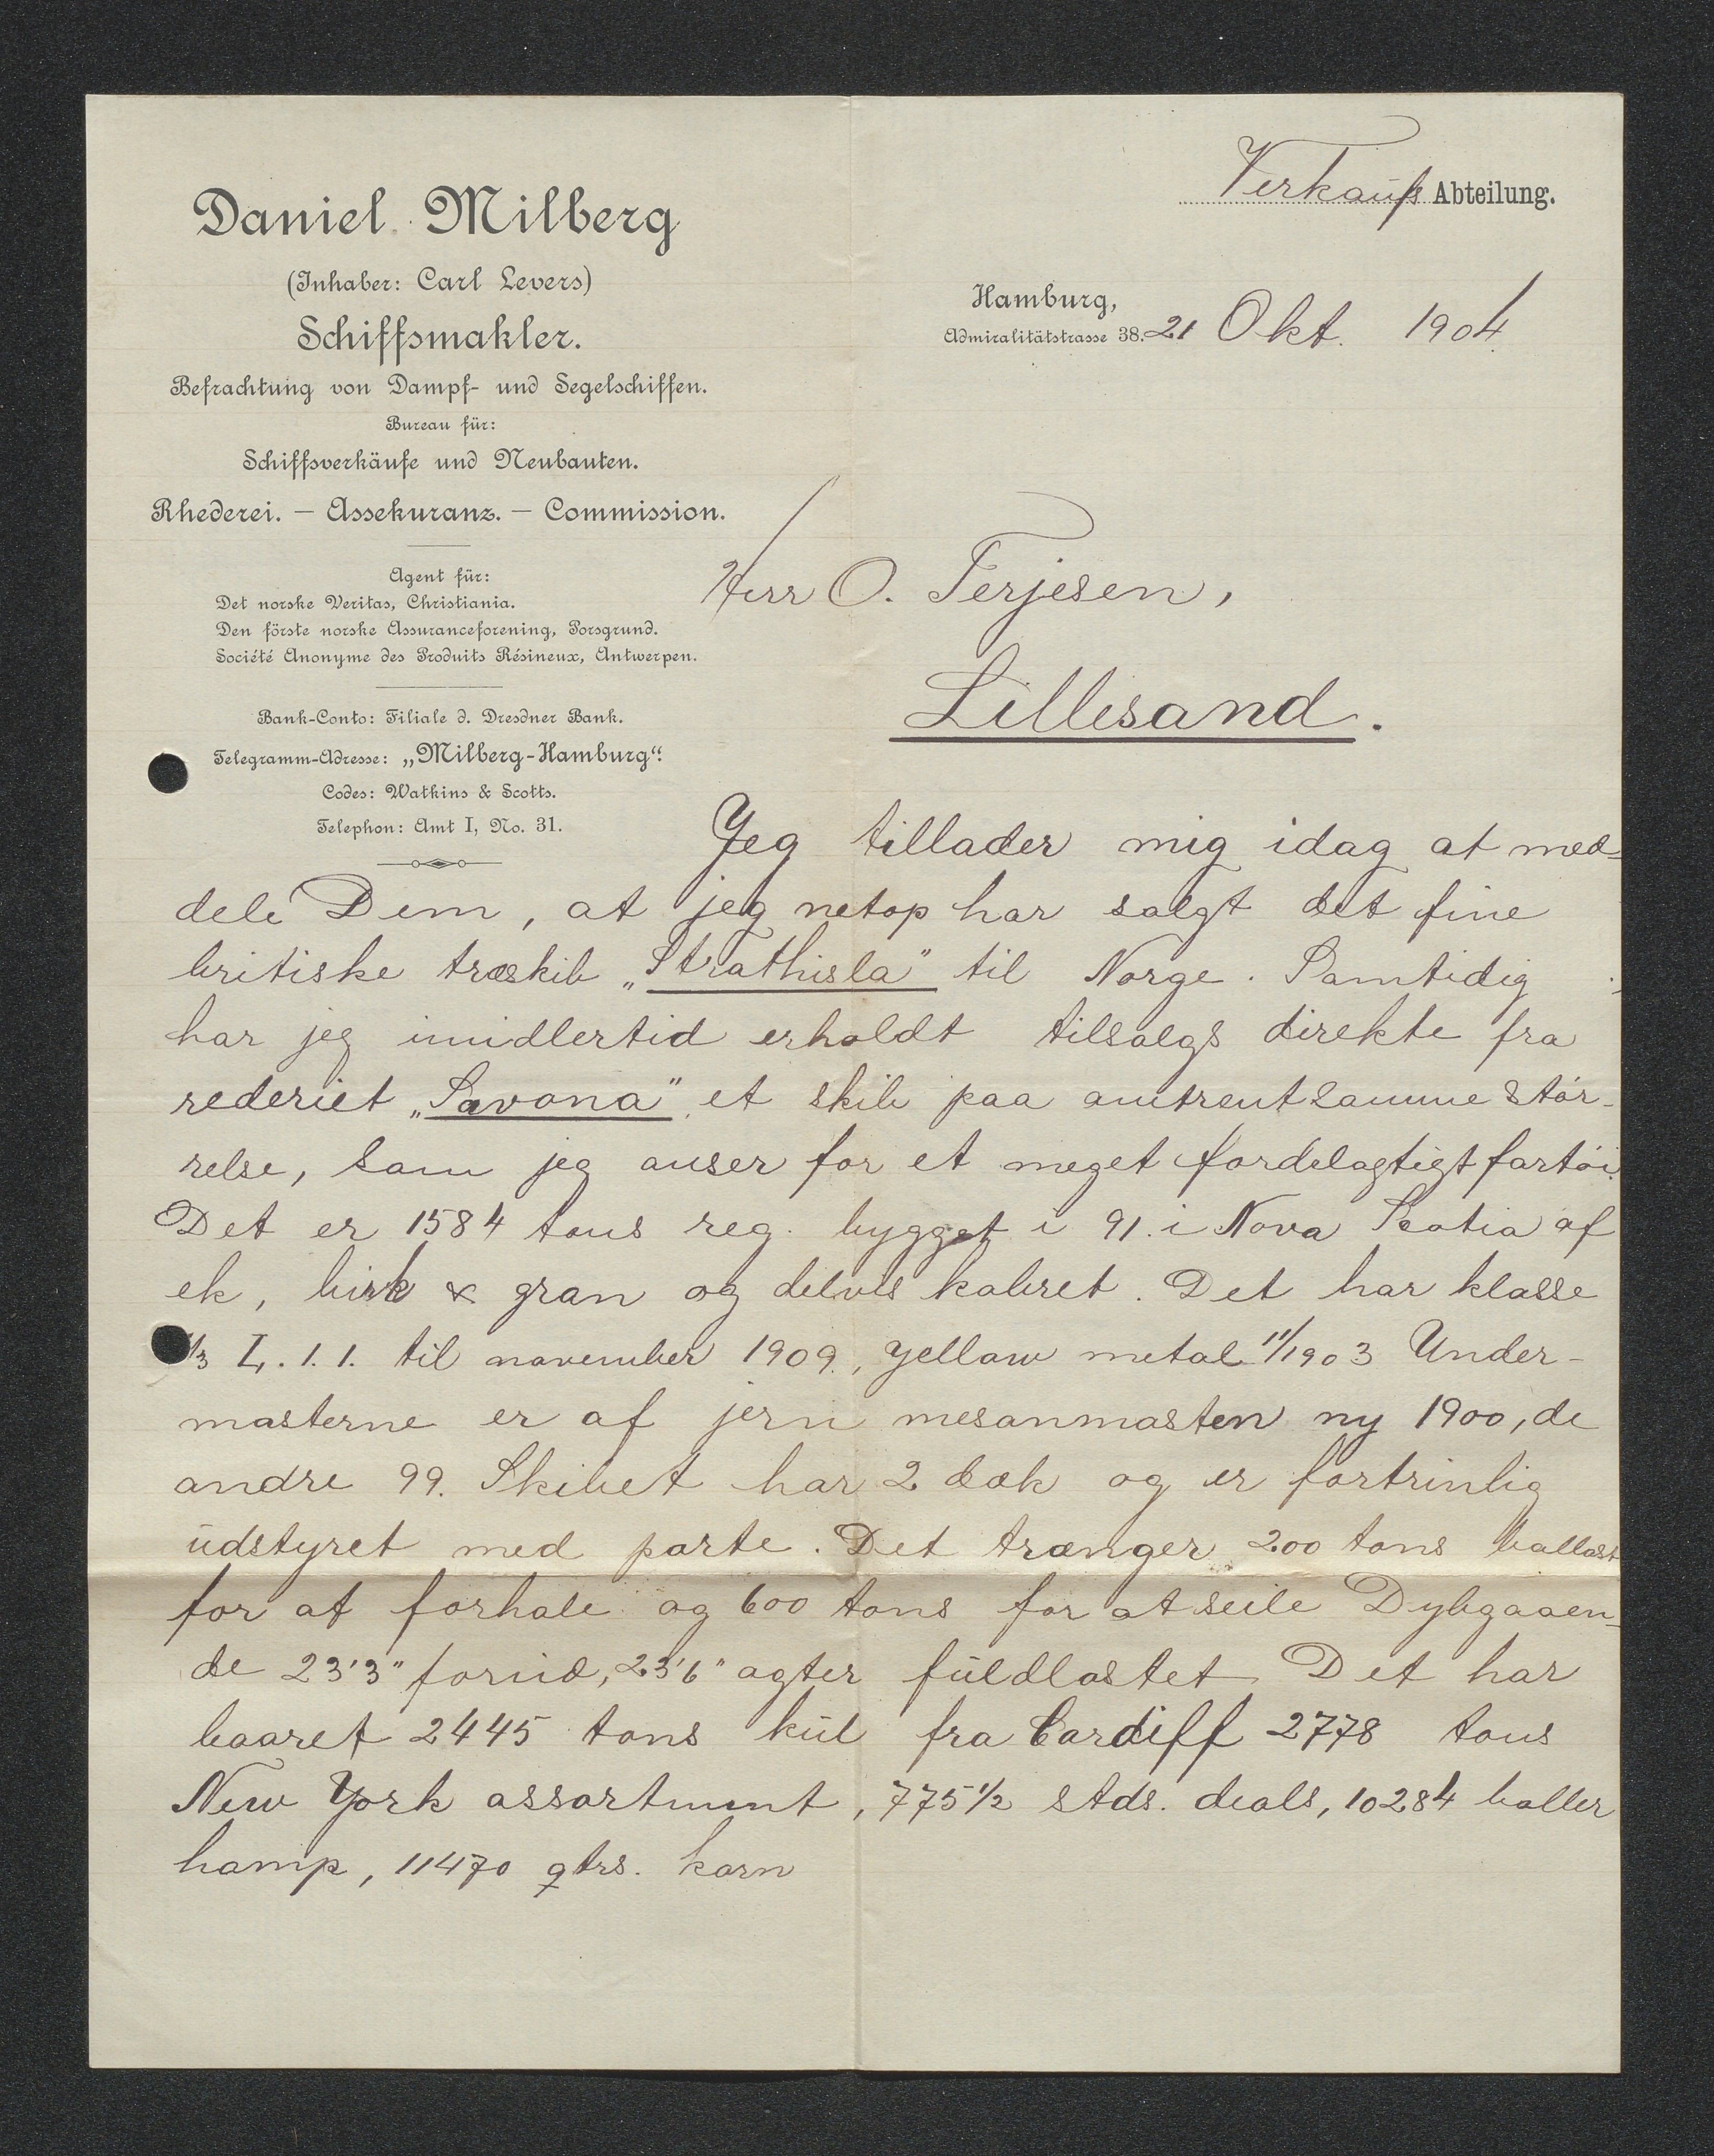 Daniel Milberg
(Inhaber: Carl Levers)
Schiffsmakler.
Befrachtung von Dampf- und Segelschiffen.
Bureau für:
Schiffsverkäufe und Neubauten.
Rhederei. — Assekuranz. — Commission.
Agent für:
Det norske Veritas, Christiania.
Den förste norske Assuranceforening, Porsgrund.
Société Anonyme des Produits Résineux, Antwerpen.
Bank-Conto: Filiale d. Dresdner Bank.
Telegramm-Adresse: „Milberg-Hamburg“.
Codes: Watkins & Scotts.
Telephon: Amt I, No. 31.
Verkaufs Abteilung.
Hamburg,
Admiralitätstrasse 38. 21 Okt. 1904.
Herr O. Terjesen,
Lillesand.
Jeg tillader mig idag at med-
dele Dem, at jeg netop har solgt det fine
britiske træskib „Strathisla" til Norge. Samtidig
har jeg imidlertid erholdt tilsalgs direkte fra
rederiet „Savona" et skib paa omtrent samme stör-
relse, som jeg anser for et meget fordelagtigt fartöi.
Det er 1584 tons reg. bygget i 91. i Nova Scotia af
ek, birk & gran og delvis kobret. Det har klasse
/3 L. 1. 1. til november 1909., yellow metal 11/1903 Under-
masterne er af jern mesanmasten ny 1900, de
andre 99. Skibet har 2 dæk og er fortrinlig
udstyret med porte. Det trænger 200 tons ballast
for at forhale og 600 tons for at seile Dybgaaen-
de 23'3" forud, 23'6" agter fuldlastet Det har
baaret 2445 tons kul fra Cardiff 2778 tons
New York assortment, 775 1/2 stds. deals, 10284 baller
hamp, 11470 qtrs. korn